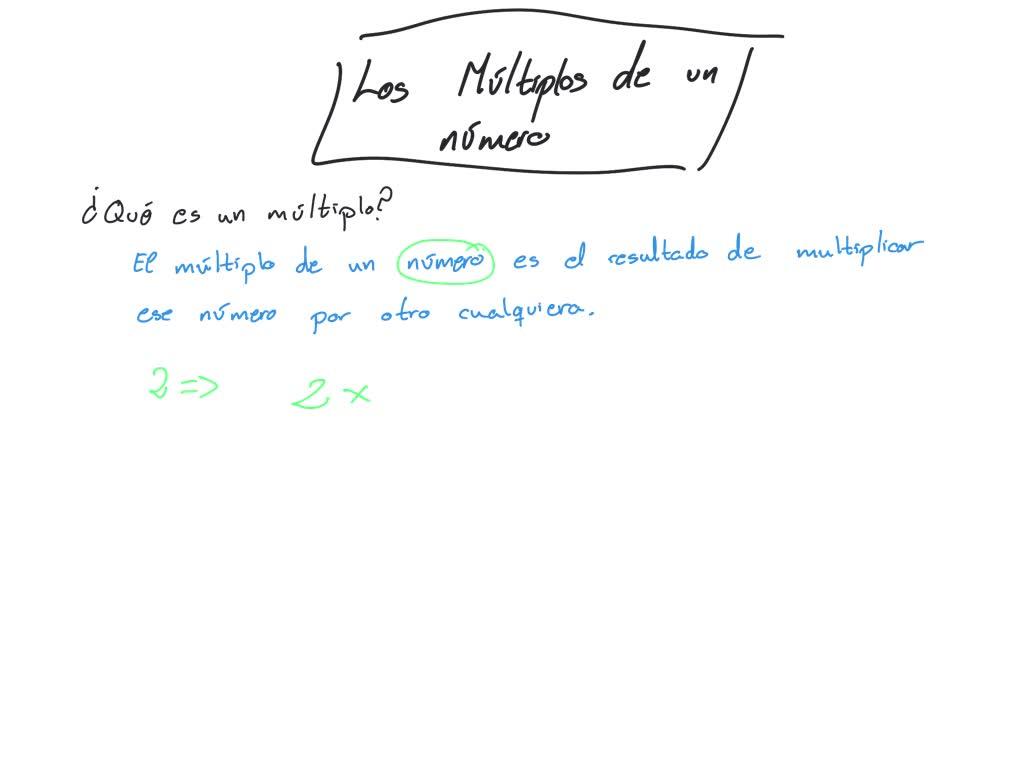 Los Múltiplos de un
número
¿Qué es un múltiplo?
El múltiplo de un número es el resultado de multiplicar
ese número por otro cualquiera.
2 => 2 x